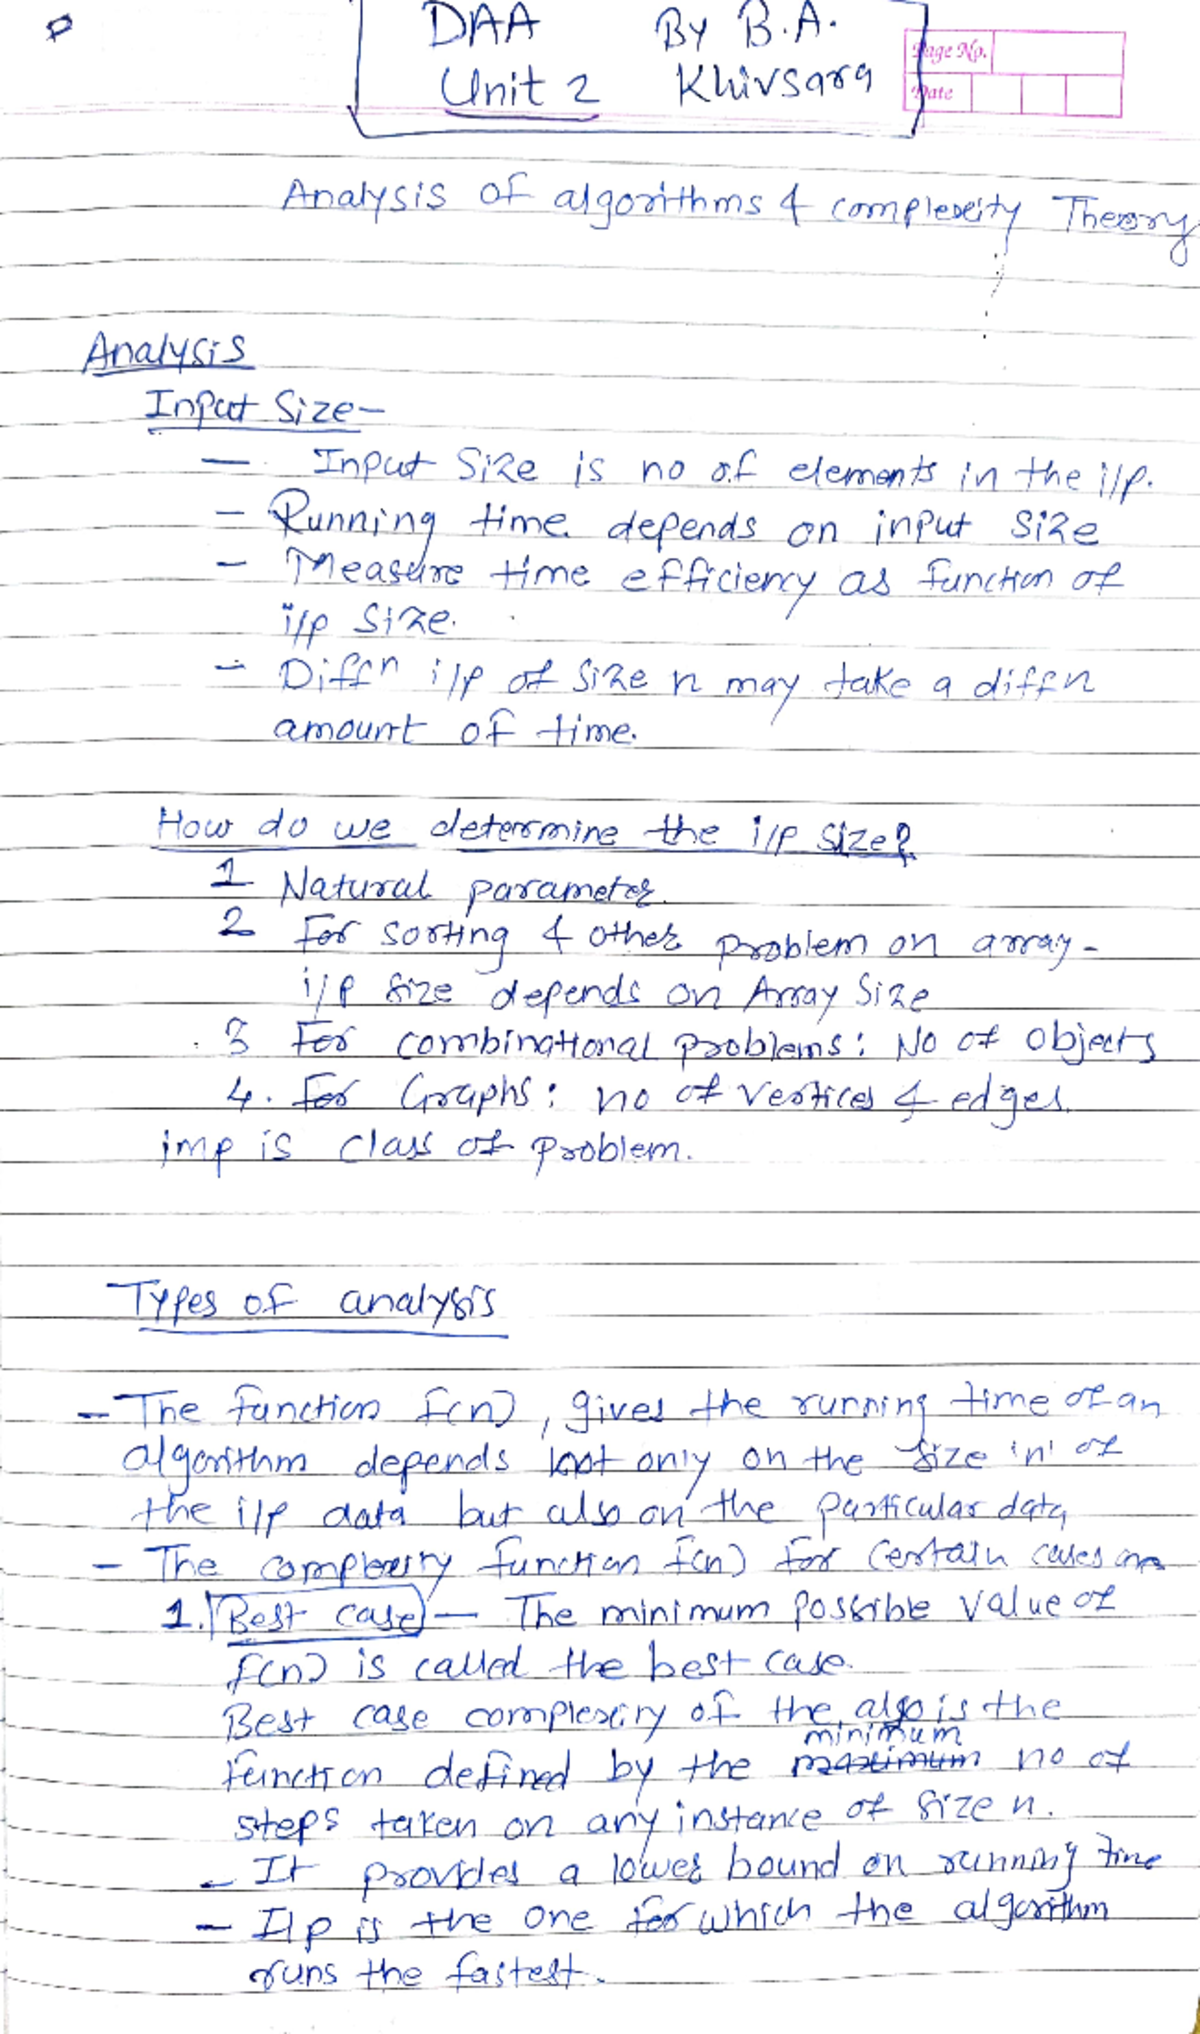 DAA By B.A.
Unit 2 Khivsara
Page No.
Date
Analysis of algorithms & complexity Theory
Analysis
Input Size-
- Input Size is no of elements in the i/p.
- Running time depends on input size
- Measure time efficiency as function of
i/p size.
- Diffn i/p of size n may take a diffn
amount of time.
How do we determine the i/p size?
1 Natural parameter.
2 For sorting & other problem on array-
i/p size depends on Array Size
3 For combinational problems: No of objects
4. For Graphs: no of vertices & edges.
imp is class of problem.
Types of analysis
- The function f(n), gives the running time of an
algorithm depends not only on the size 'n' of
the i/p data but also on the particular data
- The complexity function f(n) for certain cases are
1. Best case - The minimum possible value of
f(n) is called the best case.
Best case complexity of the algo is the
minimum
function defined by the maximum no of
steps taken on any instance of size n.
- It provides a lower bound on running time
- I/p is the one for which the algorithm
runs the fastest.